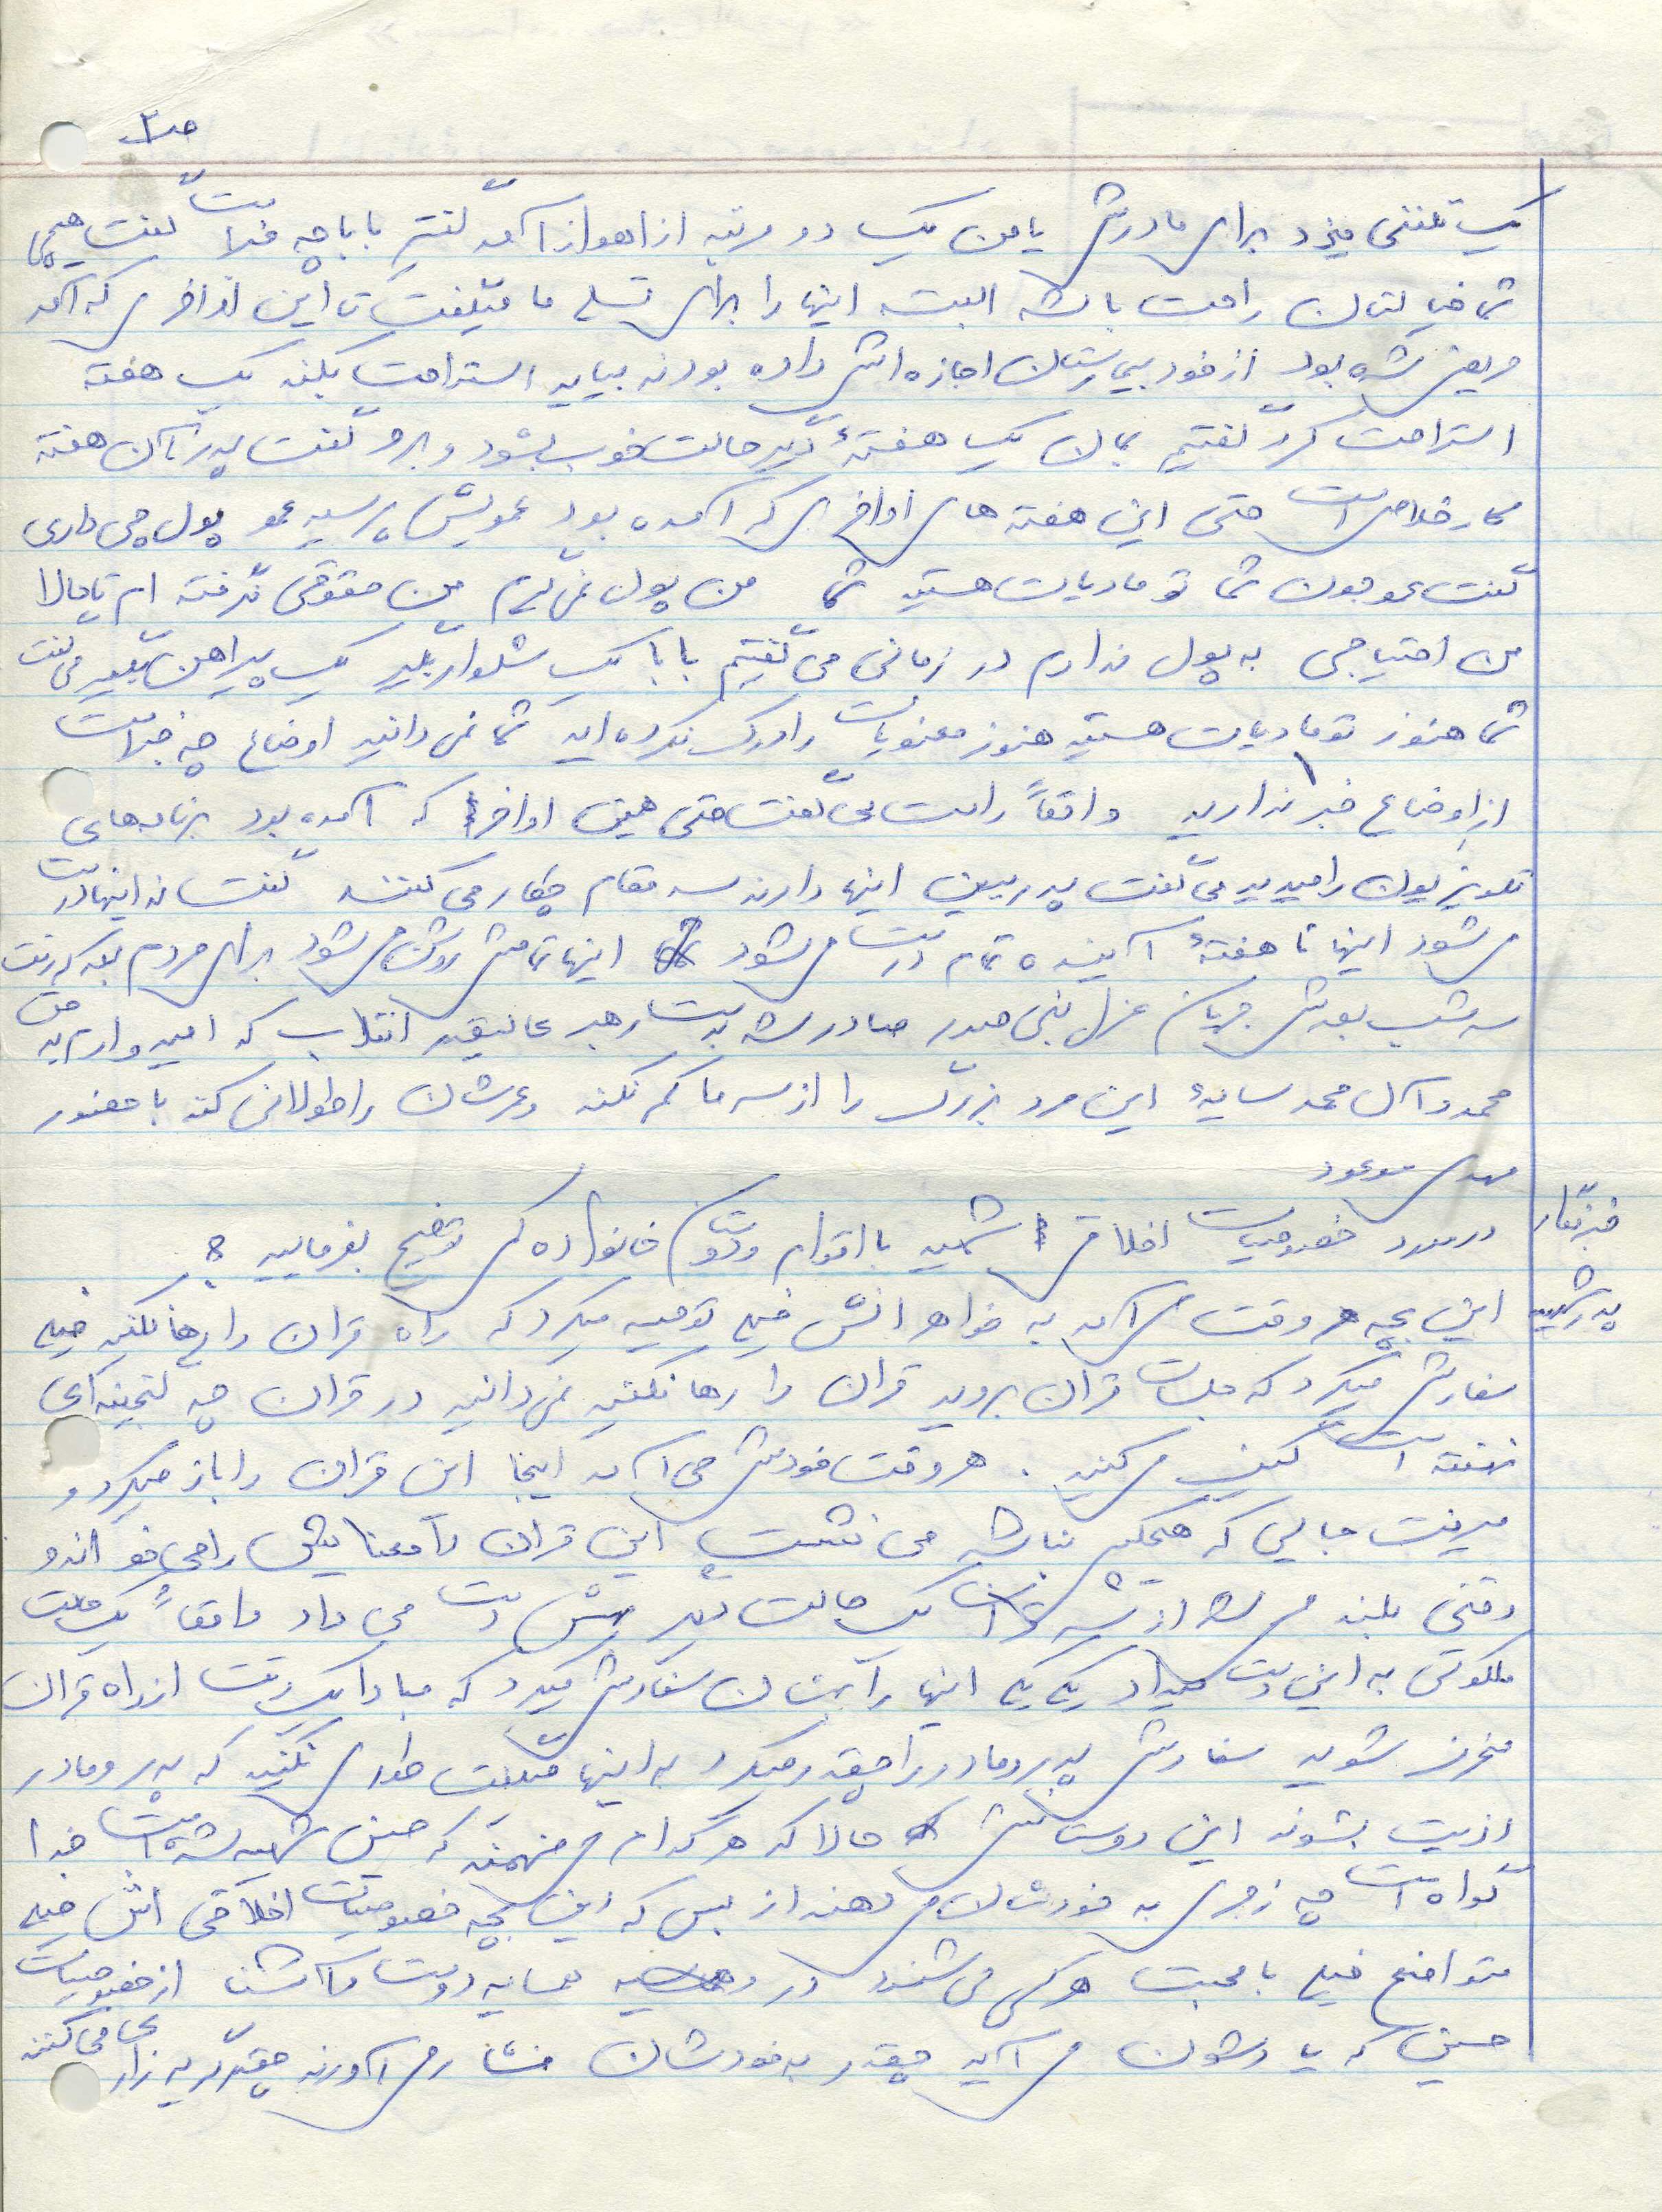 ص۳
یک تلفنی میزد برای مادرش یا من یک دو مرتبه از اهواز آمد گفتم بابا چه خبر است گفت هیچی
شما خیالتان راحت باشد البته اینها را برای تسلی ما میگفت تا این اواخری که آمد
مریض شده بود از خود بیمارستان اجازه اش داده بودند بیاید استراحت بکند یک هفته
استراحت کرد گفتیم بمان یک هفتهٔ دیگر حالت خوب بشود و برو گفت پدر تا آن هفته
کار خلاص است حتی این هفته های اواخری که آمده بود عمویش پرسید عمو پول چی داری
گفت عمو جون شما تو مادیات هستید شما من پول نمی گیرم من حقوقی نگرفته ام تا حالا
من احتیاجی به پول ندارم در زمانی می گفتیم بابا یک شلوار بگیر یک پیراهن بگیر می گفت
شما هنوز تو مادیات هستید هنوز معنویات را درک نکرده اید شما نمی دانید اوضاع چه خبر است
از اوضاع خبر ندارید واقعاً راست می گفت حتی همین اواخر که آمده بود برنامه های
تلویزیون را میدید می گفت پدر ببین اینها دارند سه مقام چکار می کنند گفت نه اینها درست
می شود اینها تا هفتهٔ آینده تمام درست می شود اینها تمامش روشن می شود برای مردم بعد که رفت
سه شب بعدش جریان عزل بنی صدر صادر شد بدست رهبر عالیقدر انقلاب که امیدوارم به حق
محمد و آل محمد سایهٔ این مرد بزرگ را از سر ما کم نکند و عمرشان را طولانی کند با حضور
مهدی موعود
خبرنگار در مورد خصوصیات اخلاقی شهید با اقوام و دوستان خانواده کمی توضیح بفرمایید ؟
پدر شهید این بچه هر وقت می آمد به خواهرانش خیلی توصیه میکرد که راه قرآن را رها نکنید خیلی
سفارش میکرد که جلسات قرآن بروید قرآن را رها نکنید نمی دانید در قرآن چه گنجینه ای
نهفته است کیف می کنید . هر وقت خودش می آمد اینجا این قرآن را باز میکرد و
میرفت جایی که هیچکس نباشد می نشست این قرآن با معنایش را می خواند و
وقتی بلند می شد از سر قرآن یک حالت دیگر بهش دست می داد واقعاً یک حالت
ملکوتی به این دست میداد یکی یکی اینها را بهشان سفارش میکرد که مبادا یک وقت از راه قرآن
منحرف شوید سفارش پدر و مادر را چقدر میکرد به اینها میگفت طوری نکنید که پدر و مادر
اذیت بشوند این دوستانش حالا که هر کدام می فهمند که حسین شهید شده است خدا
گواه است چه زجری به خودشان می دهند از بس که این بچه خصوصیات اخلاقی اش خیلی
متواضع خیلی با محبت هر کی می شنود در همسایه دوست و آشنا از خصوصیات
حسین که یادشون می آید چقدر به خودشان فشار می آورند چقدر گریه زاری می کنند